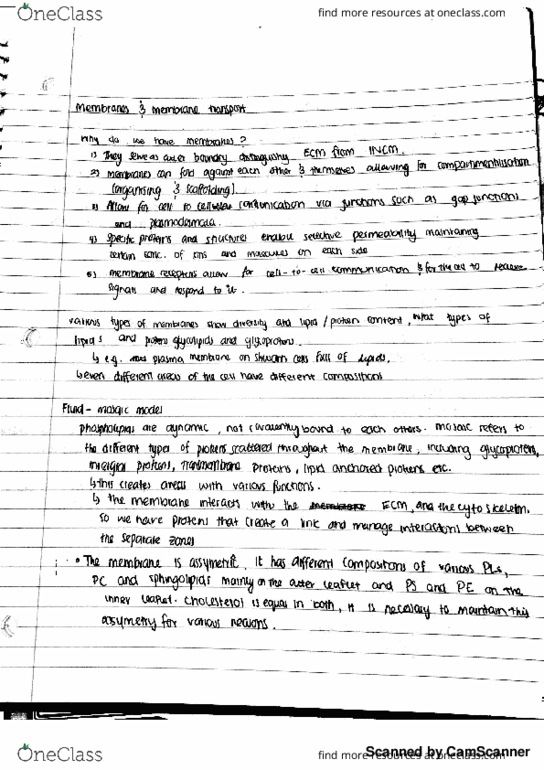 OneClass
find more resources at oneclass.com
Membranes & membrane transport
Why do we have membranes?
1) They serve as outer boundary distinguishing ECM from INCM.
2) membranes can fold against each other & themselves allowing for compartmentilisation
(organising & scaffolding).
3) Allow for cell to cellular comunication via junctions such as gap junctions
and plasmodesmata.
4) Specific proteins and structures enable selective permeability maintaining
certain conc. of ions and molecules on each side
5) membrane receptors allow for cell-to-cell communication & for the cell to receive
signals and respond to it.
various types of membranes show diversity and lipid/protein content, what types of
lipids and proteins glycolipids and glycoproteins.
↳ e.g. plasma membrane on shwann cells full of lipids,
↳ even different areas of the cell have different compositions
Fluid-mosaic model
phospholipids are dynamic, not covalently bound to each others. mosaic refers to
the different types of proteins scattered throughout the membrane, including glycoproteins,
integral proteins, transmembrane proteins, lipid anchored proteins etc.
↳ this creates areas with various functions.
↳ the membrane interacts with the ECM, and the cytoskeleton.
so we have proteins that create a link and manage interactions between
the separate zones
• The membrane is assymetric, it has different compositions of various PLs,
PC and sphingolipids mainly on the outer leaflet and PS and PE on the
inner leaflet. cholesterol is equal in both, it is necessary to maintain this
assymetry for various reasons.
OneClass
find more resources at oneclass.com
Scanned by CamScanner